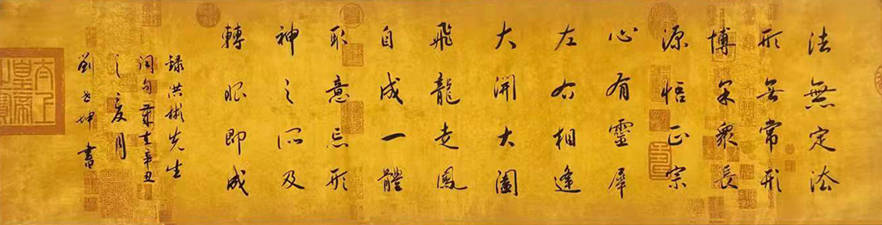 法無定法
形无常形
博采衆長
源悟正宗
心有靈犀
左右相逢
大開大闔
飛龍走鳳
自成一體
取意忘形
神之所及
轉眼即成
錄洪彬先生
詞句歲在辛丑
之夏月
劉坤書
太上皇帝之寶